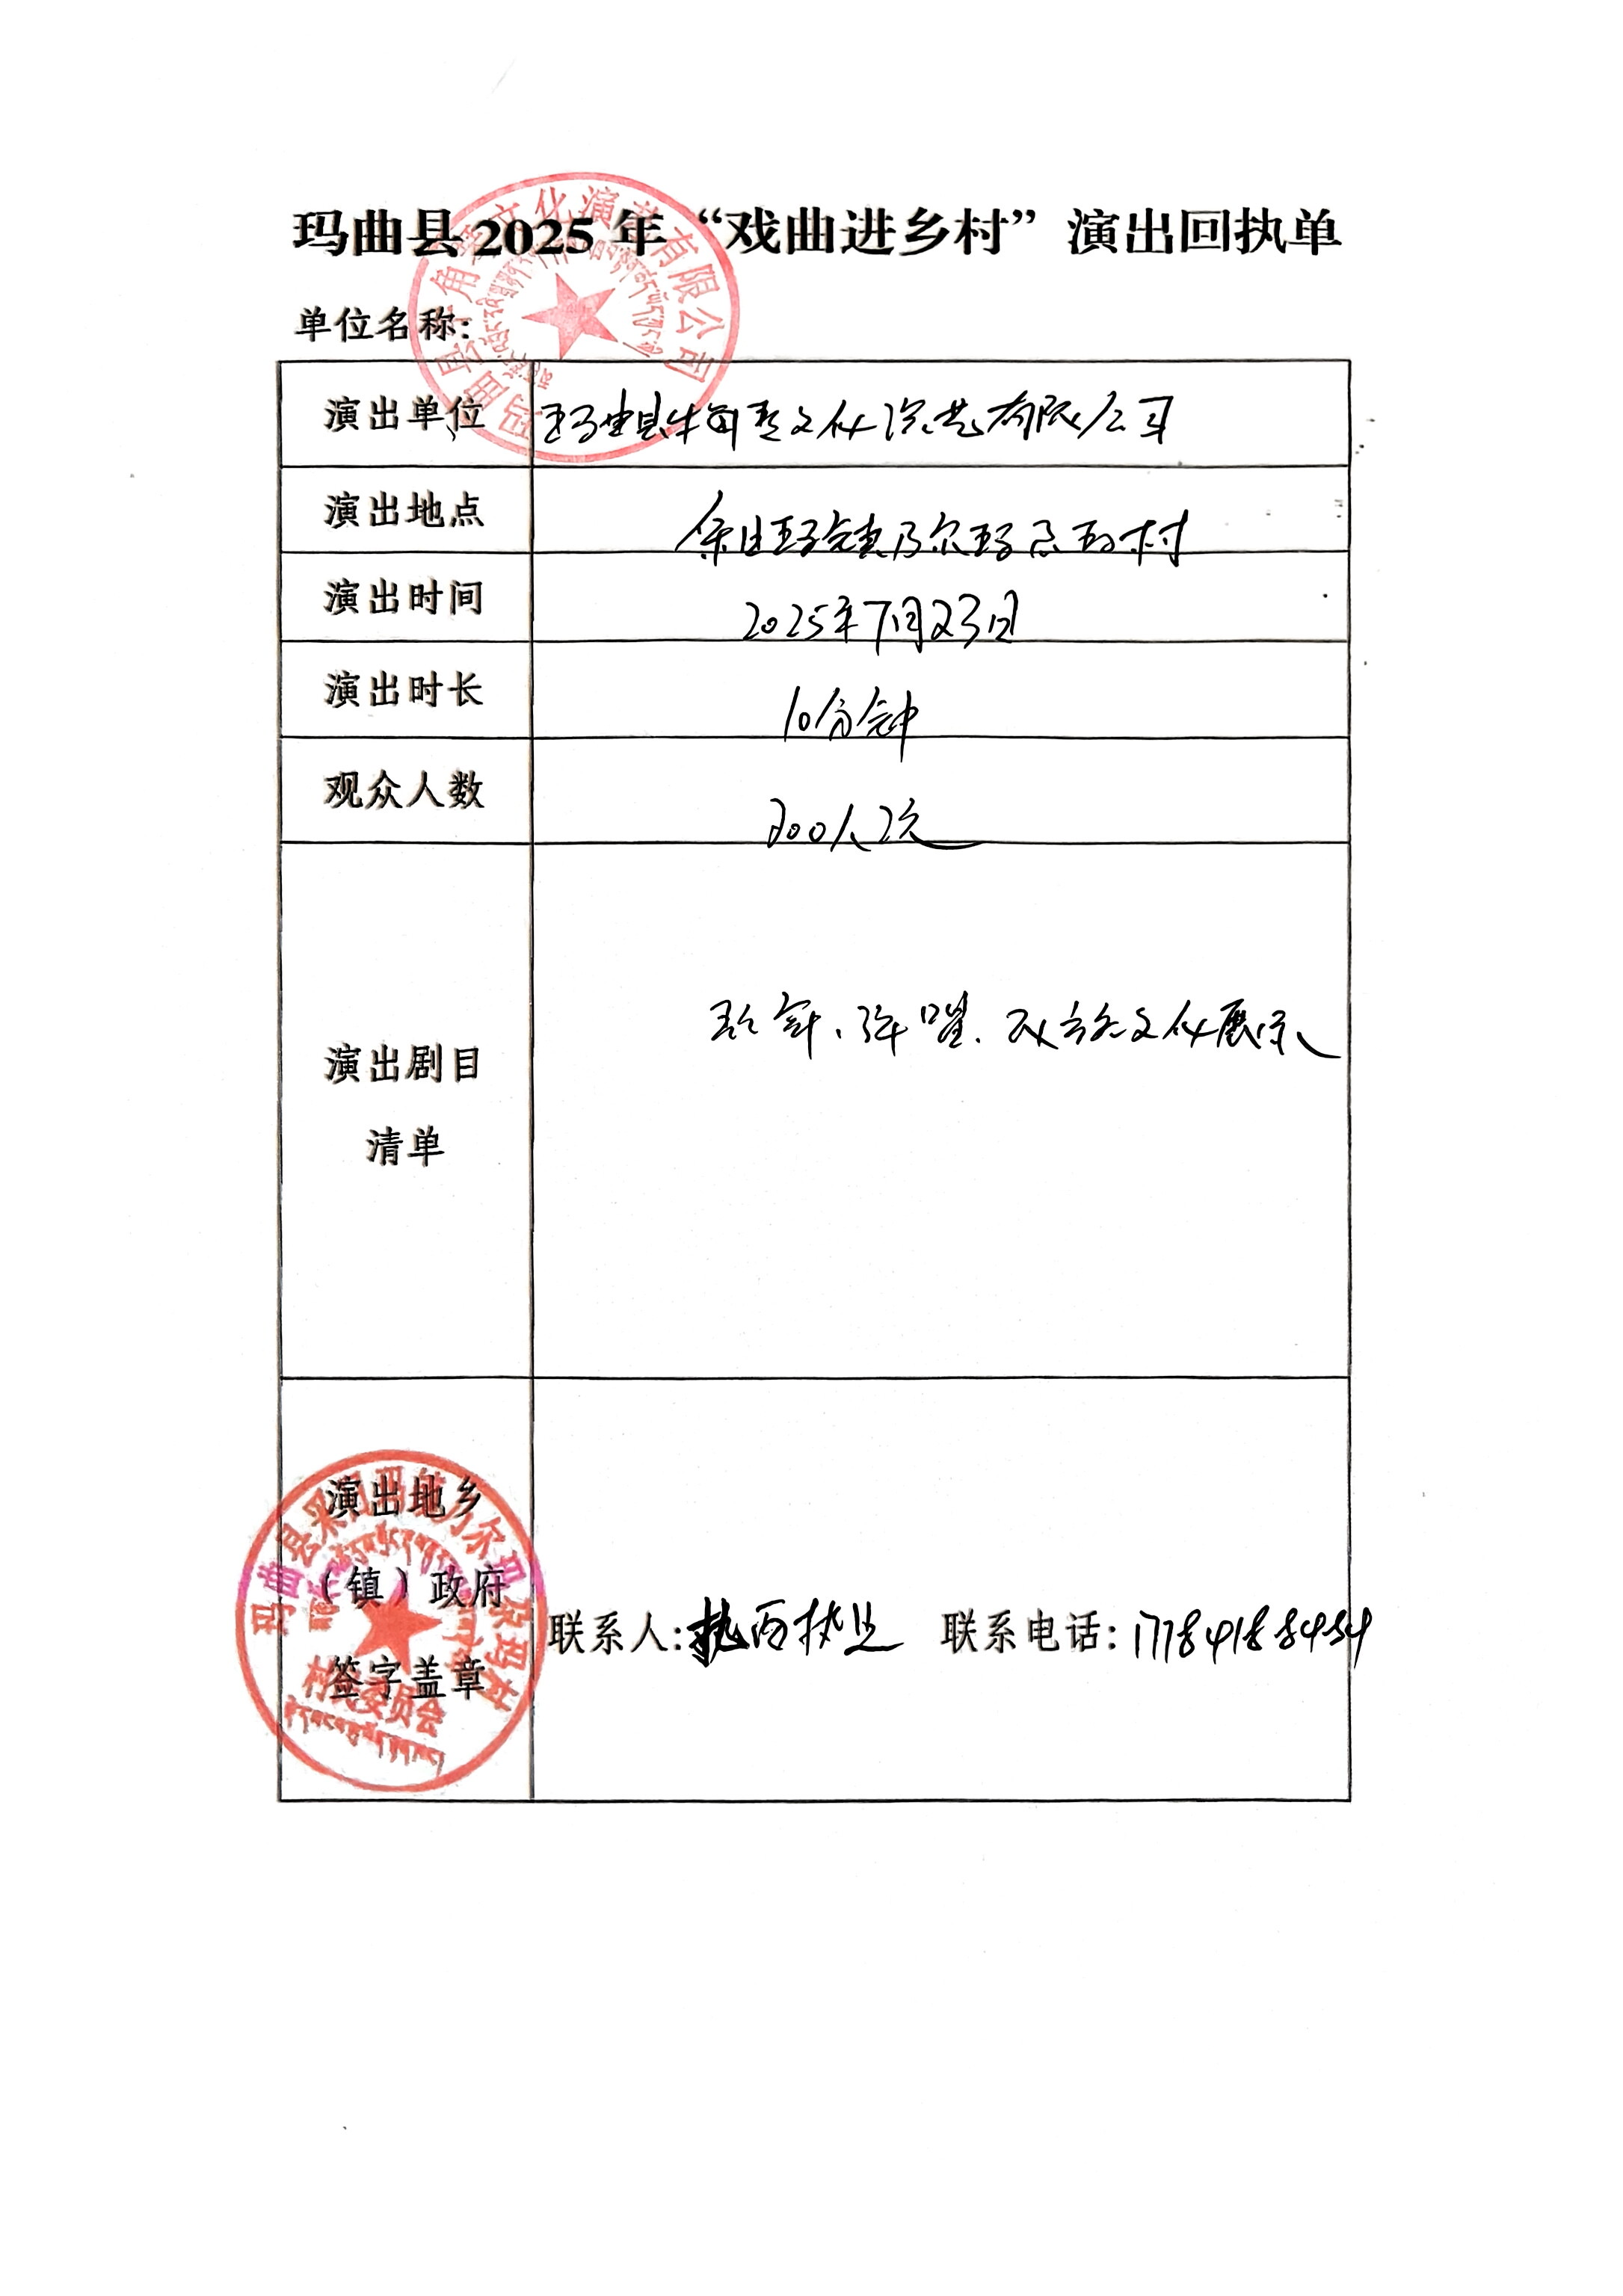 玛曲县2025年“戏曲进乡村”演出回执单
单位名称:
演出单位 玛曲县牛角琴文化演艺有限公司
演出地点 采日玛镇乃尔玛村
演出时间 2025年7月23日
演出时长 10分钟
观众人数 200人次
演出剧目
清单
弹唱、文化展示
演出地乡
(镇)政府
签字盖章
联系人: 联系电话:17784188454
玛曲县牛角琴文化演艺有限公司
玛曲县采日玛镇乃尔玛
村民委员会